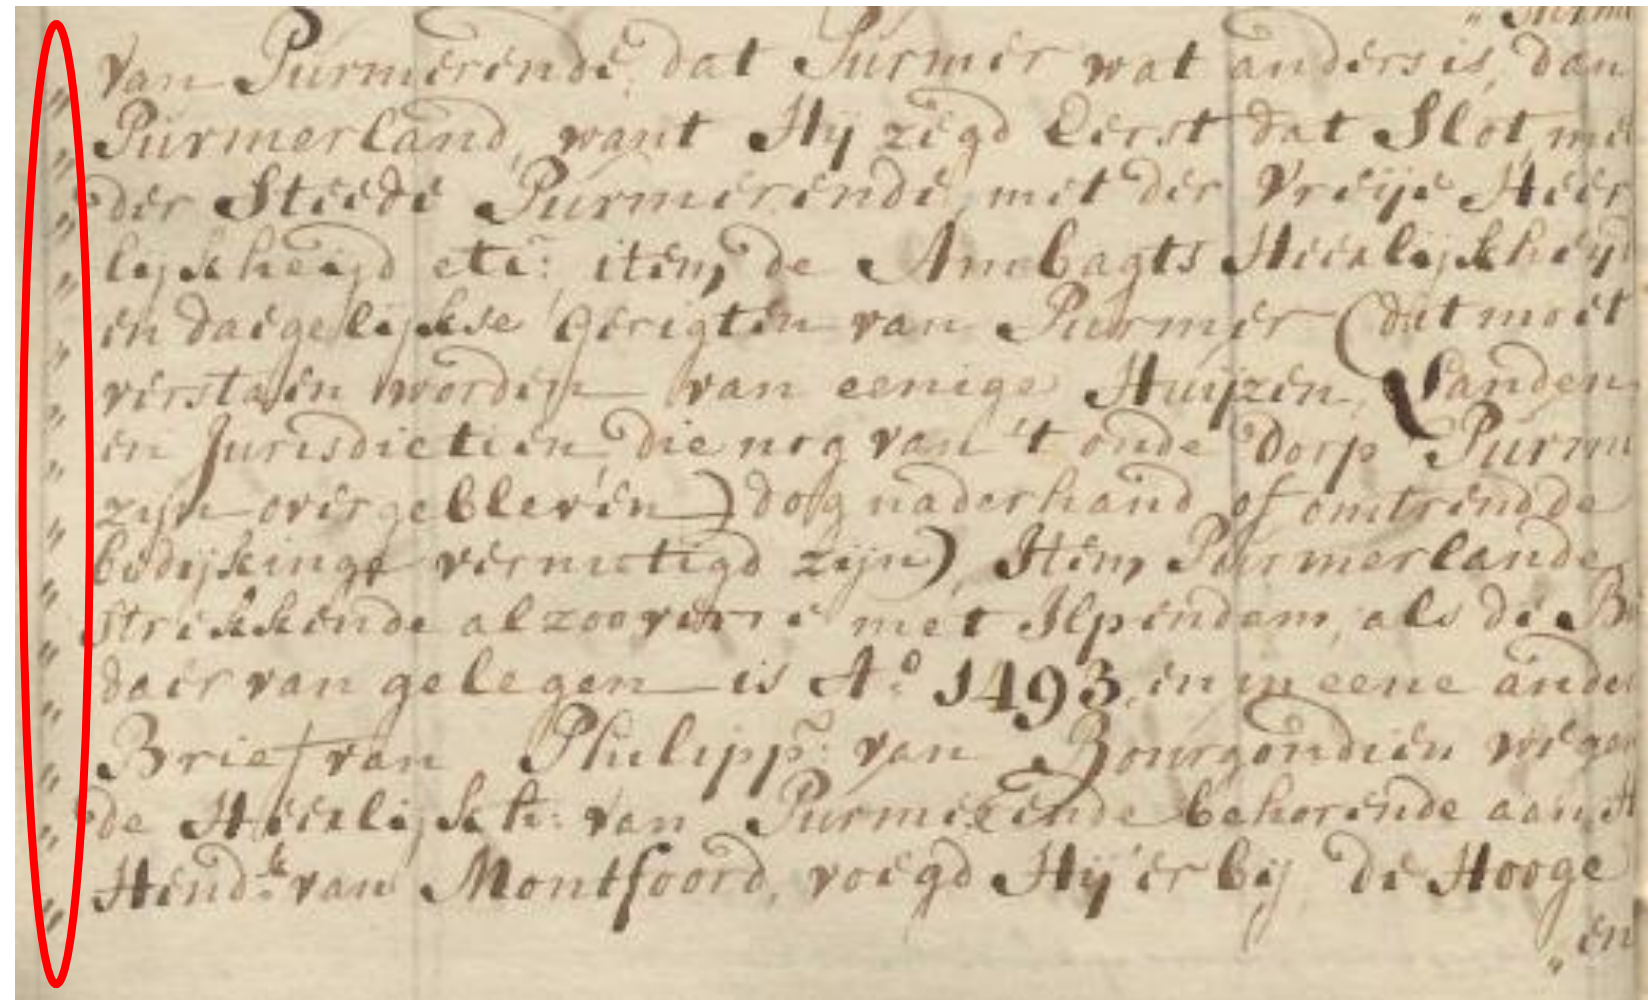 „ van Purmerende, dat Purmer wat anders is, dan
„ Purmerland, want Hij zegd Eerst dat Slot, me
„ der Steede Purmerende, met der Vreije Heer
„ lijkheijd etc: item, de Ambagts Heerlijkheijd
„ en daegelijkse Gerigten van Purmer (dit moet
„ verstaen worden van eenige Huijzen, Landen
„ en Jurisdictien, die nog van 't oude Dorp Purme
„ zijn overgebleven) dog naderhand of omtrend de
„ bedijkinge vernietigd zijn), Item, Purmerlande
„ strekkende alzoo verre met Ilpendam, als de B
„ daer van gelegen is Aº 1493, en in eene ander
„ Brief van Philipp: van Bourgondien wegen
„ de Heerlijkh: van Purmerende behorende aan H
„ Hend:k van Montfoord, voegd Hij er bij, de Hooge
„ en